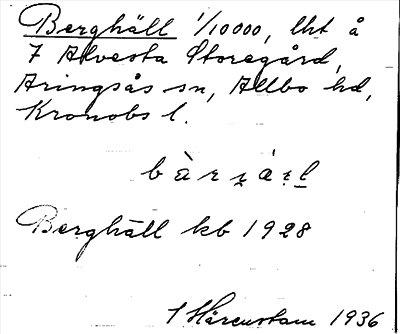 Berghäll 1/10000, lht å
7 Alvesta Storegård,
Aringsås sn, Allbo hd,
Kronobs l.
Berghäll kb 1928
1936